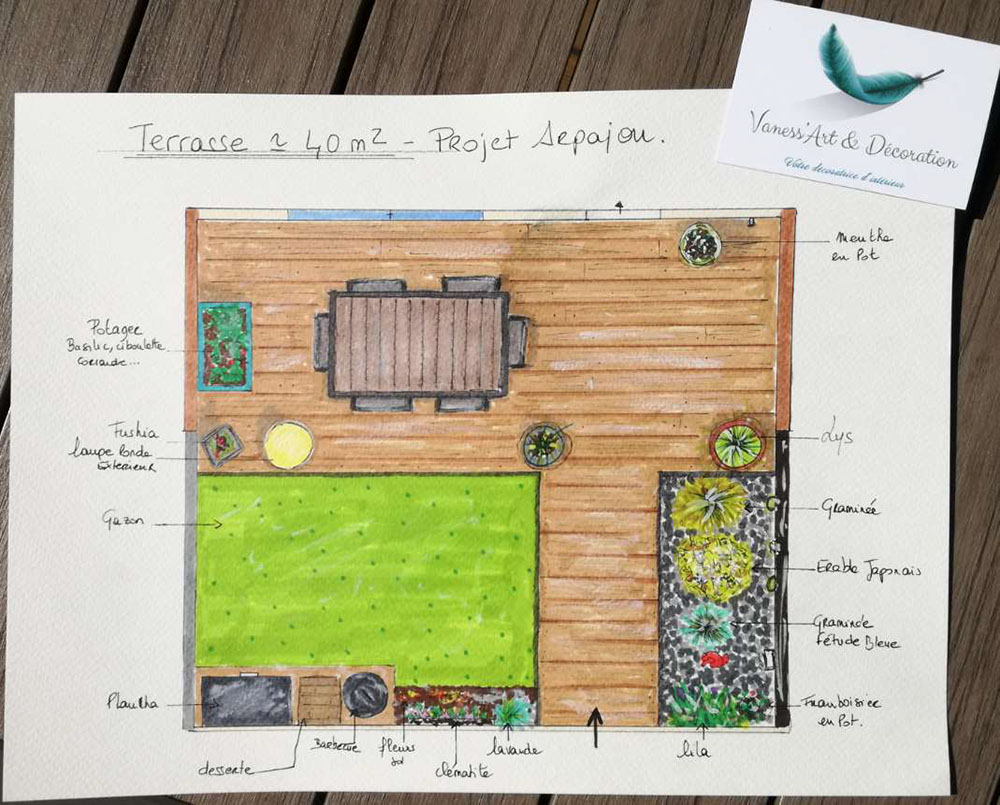 Terrasse ≃ 40 m² - Projet Arpajon.
Vaness'Art & Décoration
Votre décoratrice d'intérieur
Menthe
en Pot
Potager
Basilic, ciboulette
Coriande...
Fushia
lampe Ronde
Exterieur
Lys
Gazon
Graminée
Erable Japonais
Graminée
Fétude Bleue
Plancha
Framboisier
en Pot.
Barbecue
fleurs
sol
lavande
lila
desserte
Clématite